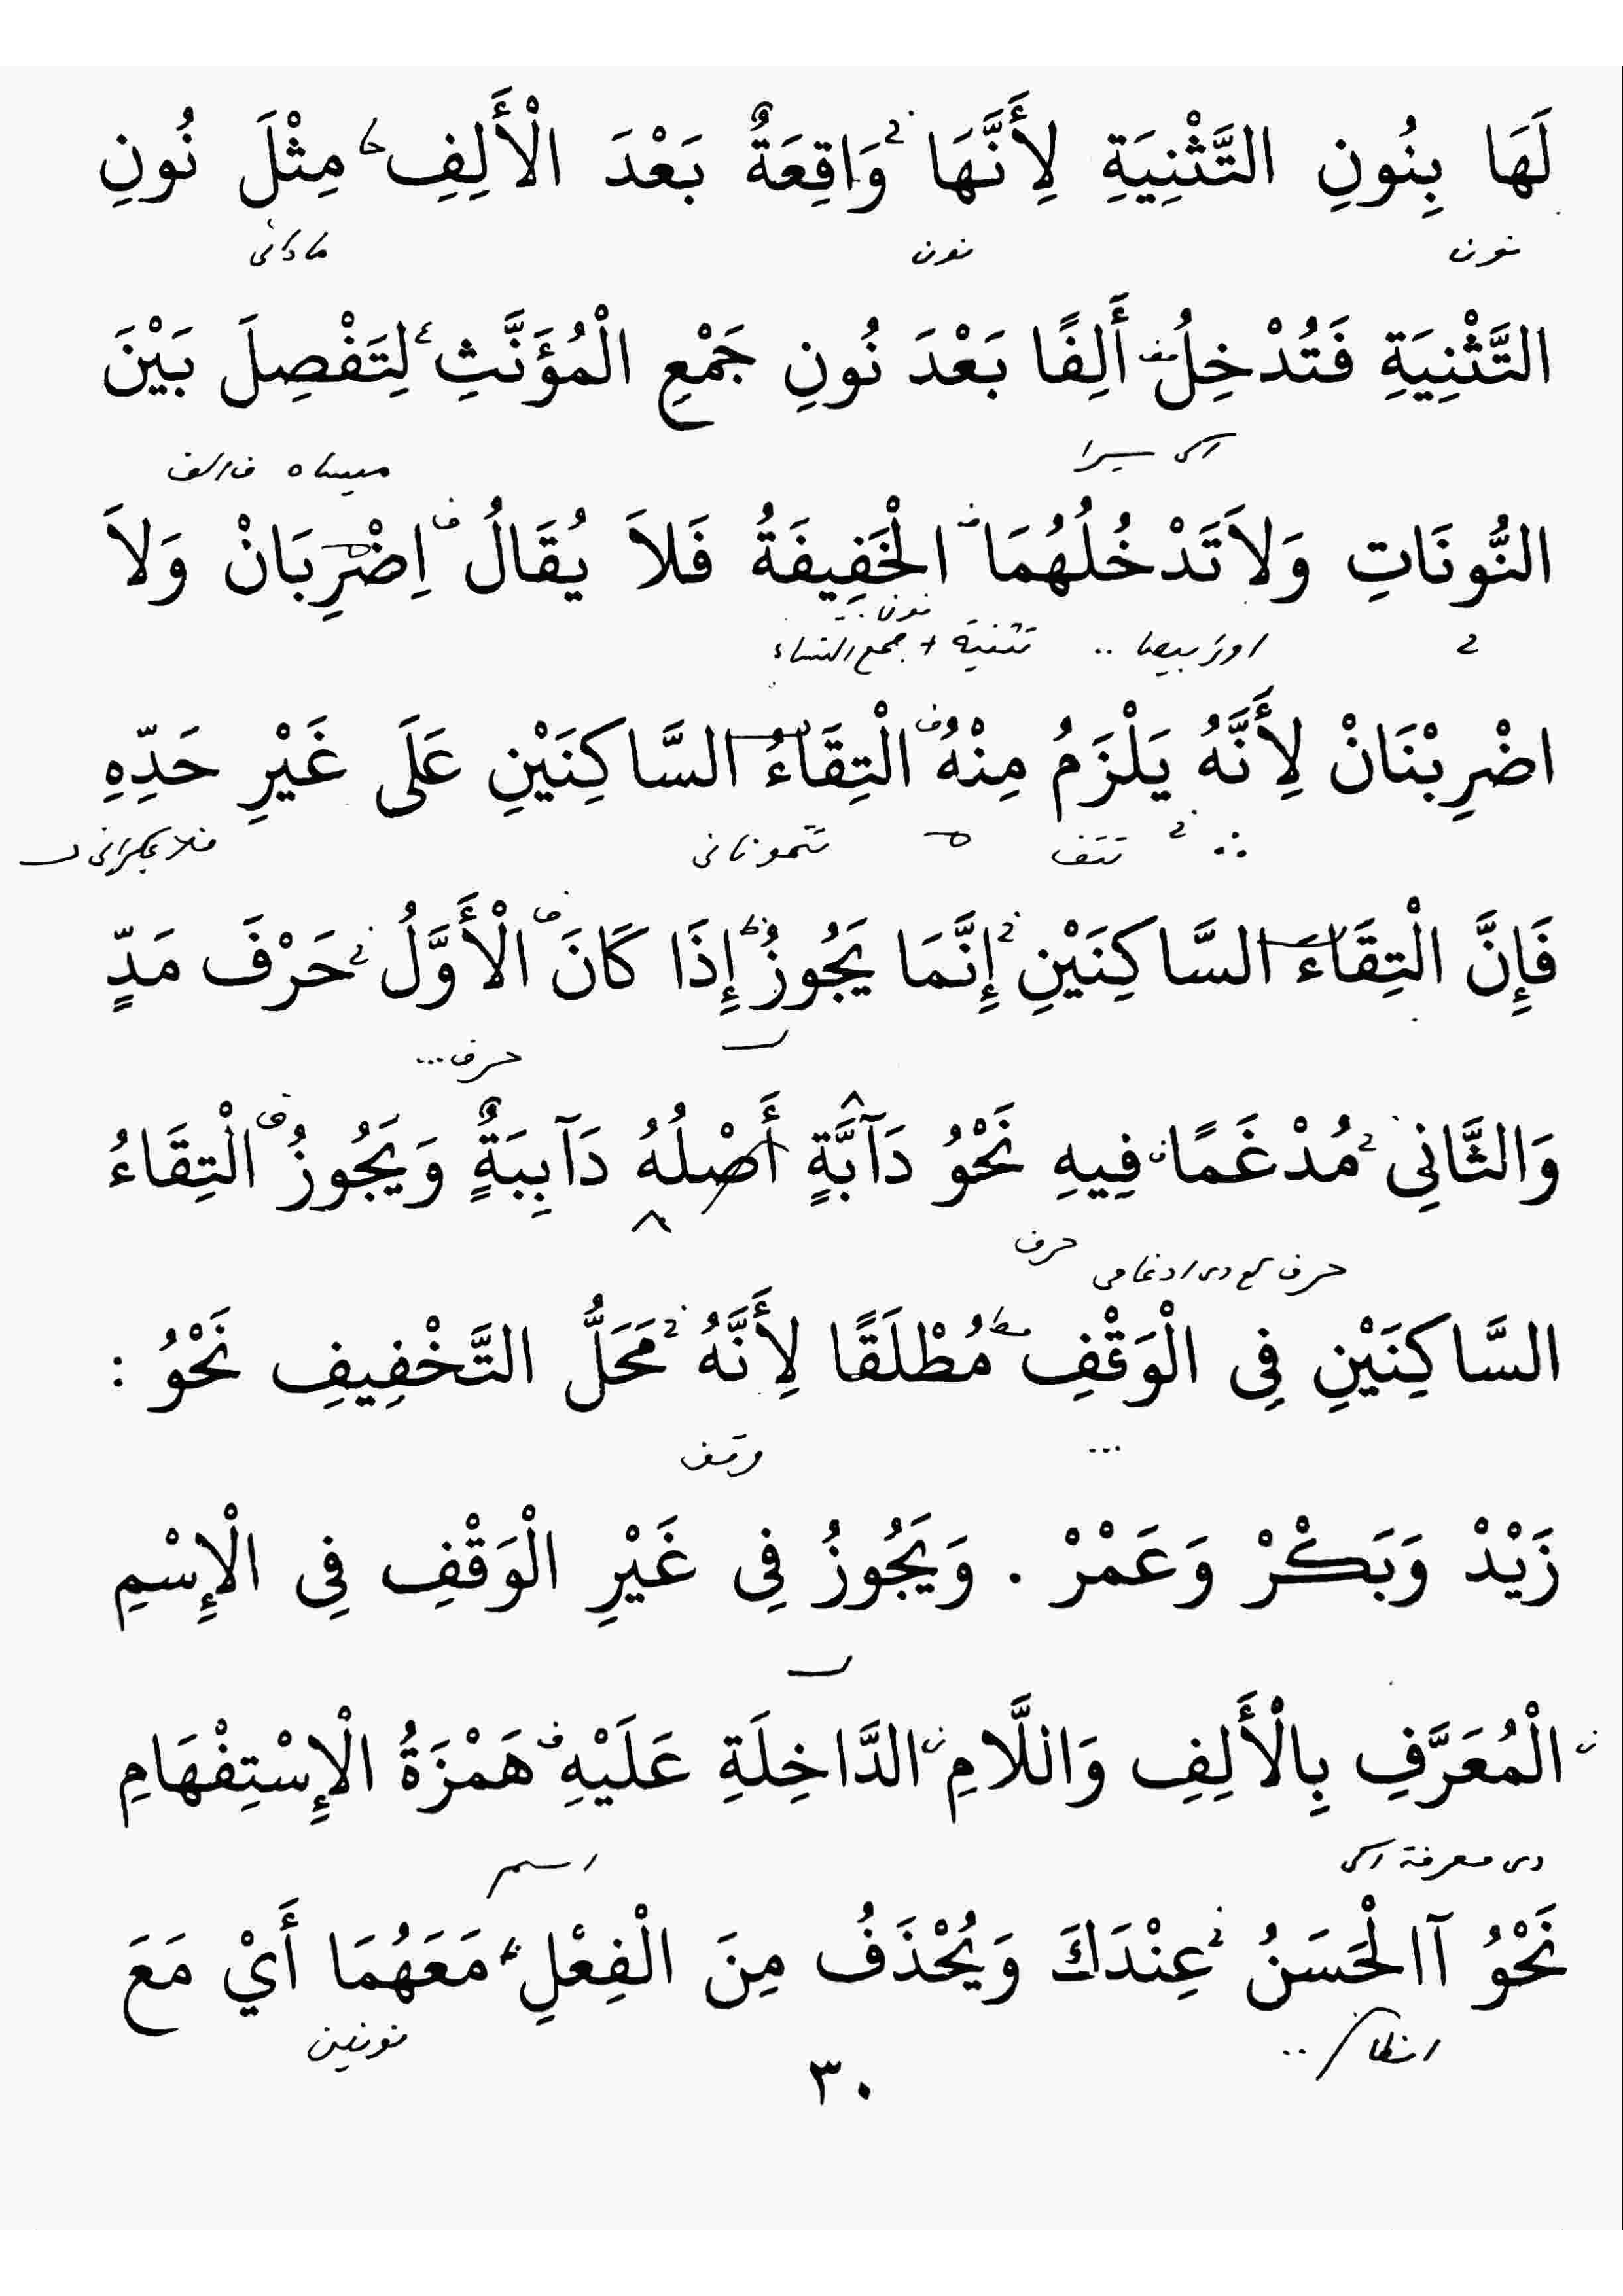 لَهَا بِنُونِ التَّثْنِيَةِ لِأَنَّهَا وَاقِعَةٌ بَعْدَ الْأَلِفِ مِثْلَ نُونِ
نون نون
التَّثْنِيَةِ فَتُدْخِلُ أَلِفًا بَعْدَ نُونِ جَمْعِ الْمُؤَنَّثِ لِتَفْصِلَ بَيْنَ
النُّونَاتِ وَلاَتَدْخُلُهُمَا الْخَفِيفَةُ فَلاَ يُقَالُ اِضْرِبَانْ وَلاَ
نون
تثنية + جمع النساء
اضْرِبْنَانْ لِأَنَّهُ يَلْزَمُ مِنْهُ الْتِقَاءُ السَّاكِنَيْنِ عَلَى غَيْرِ حَدِّهِ
فَإِنَّ الْتِقَاءَ السَّاكِنَيْنِ إِنَّمَا يَجُوزُ إِذَا كَانَ الْأَوَّلُ حَرْفَ مَدٍّ
حرف...
وَالثَّانِى مُدْغَمًا فِيهِ نَحْوُ دَآبَّةٍ أَصْلُهُ دَآبِبَةٌ وَيَجُوزُ الْتِقَاءُ
حرف
السَّاكِنَيْنِ فِى الْوَقْفِ مُطْلَقًا لِأَنَّهُ مَحَلُّ التَّخْفِيفِ نَحْوُ :
... وقف
زَيْدْ وَبَكْرْ وَعَمْرْ . وَيَجُوزُ فِى غَيْرِ الْوَقْفِ فِى الْإِسْمِ
الْمُعَرَّفِ بِالْأَلِفِ وَاللَّامِ الدَّاخِلَةِ عَلَيْهِ هَمْزَةُ الْإِسْتِفْهَامِ
دى معرفة اكى اسم
نَحْوُ آالْحَسَنُ عِنْدَكَ وَيُحْذَفُ مِنَ الْفِعْلِ مَعَهُمَا أَيْ مَعَ
نونين
٣٠